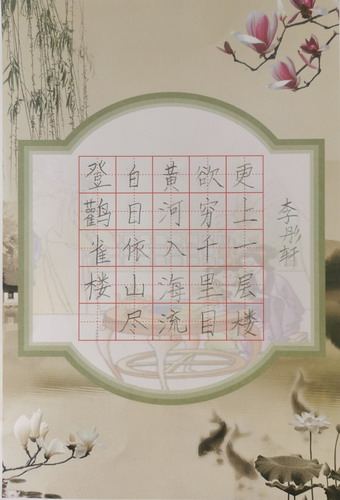 登鹳雀楼
白日依山尽
黄河入海流
欲穷千里目
更上一层楼
李彤轩